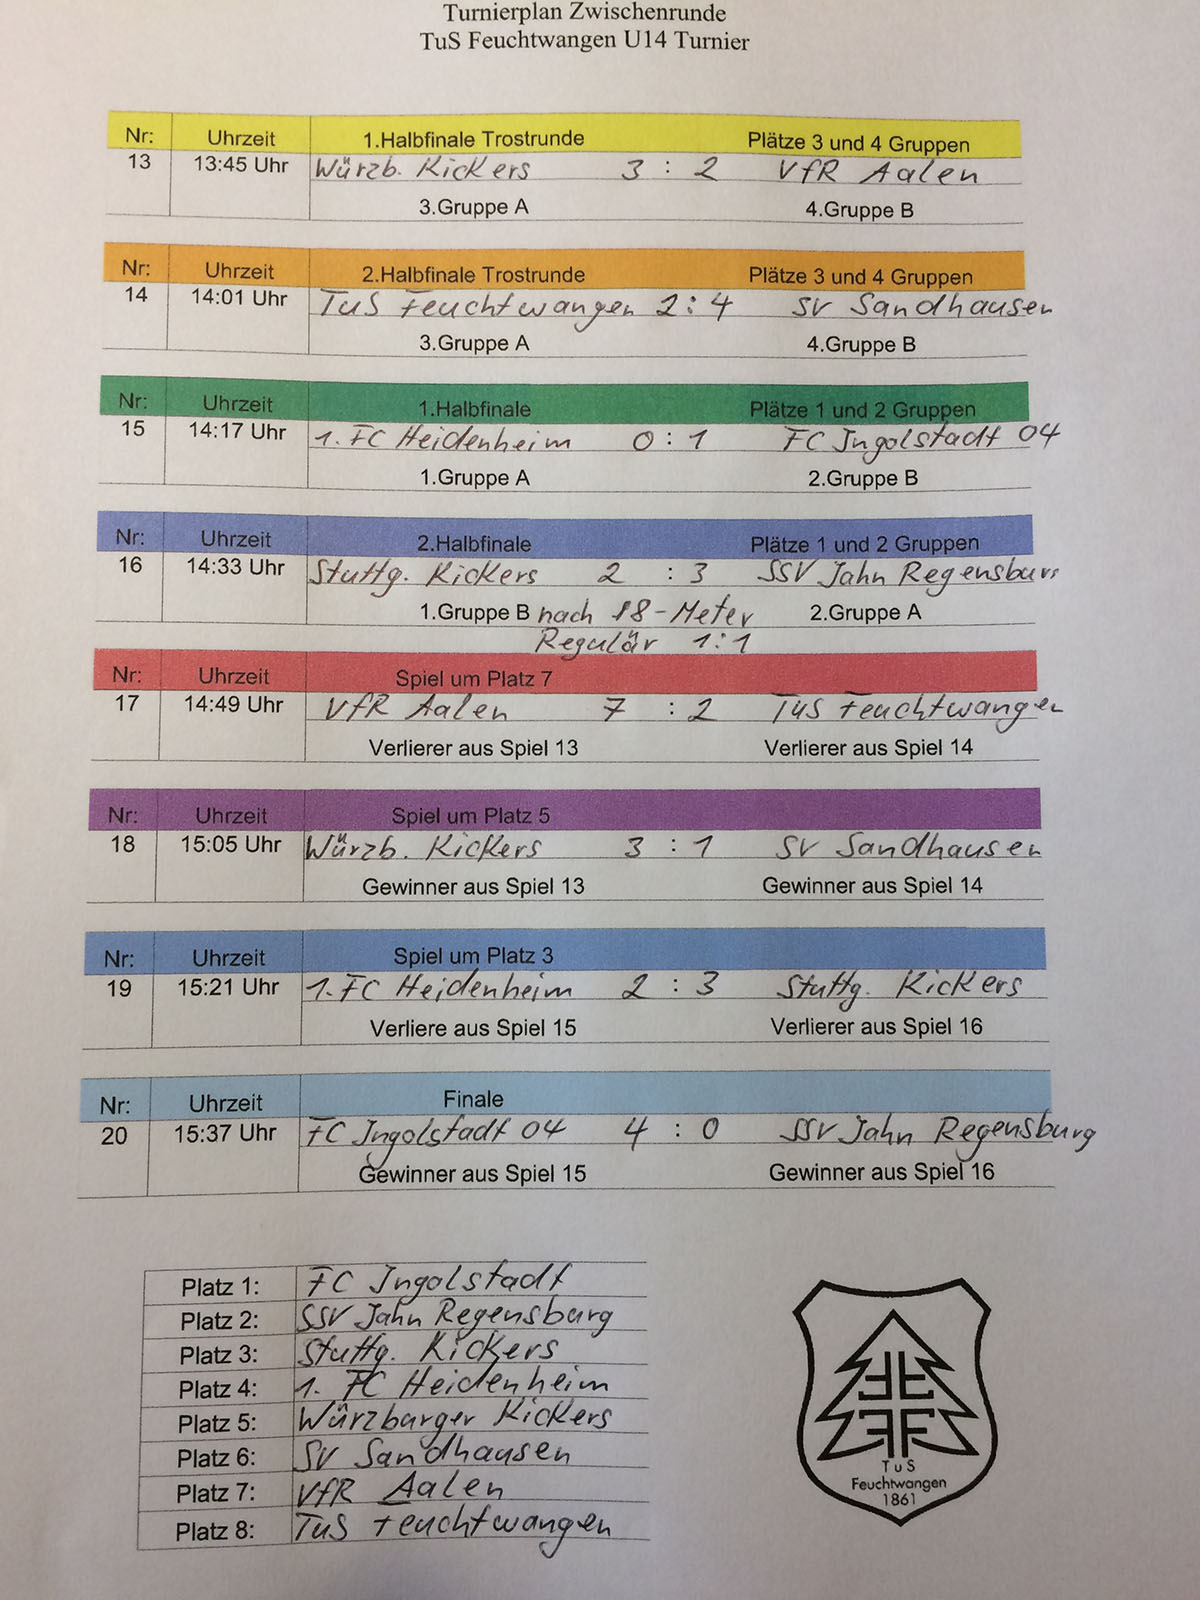 Turnierplan Zwischenrunde
TuS Feuchtwangen U14 Turnier
Nr: Uhrzeit 1.Halbfinale Trostrunde Plätze 3 und 4 Gruppen
13 13:45 Uhr Würzb. Kickers 3 : 2 VfR Aalen
3.Gruppe A 4.Gruppe B
Nr: Uhrzeit 2.Halbfinale Trostrunde Plätze 3 und 4 Gruppen
14 14:01 Uhr TuS Feuchtwangen 2 : 4 SV Sandhausen
3.Gruppe A 4.Gruppe B
Nr: Uhrzeit 1.Halbfinale Plätze 1 und 2 Gruppen
15 14:17 Uhr 1. FC Heidenheim 0 : 1 FC Ingolstadt 04
1.Gruppe A 2.Gruppe B
Nr: Uhrzeit 2.Halbfinale Plätze 1 und 2 Gruppen
16 14:33 Uhr Stuttg. Kickers 2 : 3 SSV Jahn Regensburg
1.Gruppe B nach 8-Meter 2.Gruppe A
Regulär 1:1
Nr: Uhrzeit Spiel um Platz 7
17 14:49 Uhr VfR Aalen 7 : 2 TuS Feuchtwangen
Verlierer aus Spiel 13 Verlierer aus Spiel 14
Nr: Uhrzeit Spiel um Platz 5
18 15:05 Uhr Würzb. Kickers 3 : 1 SV Sandhausen
Gewinner aus Spiel 13 Gewinner aus Spiel 14
Nr: Uhrzeit Spiel um Platz 3
19 15:21 Uhr 1. FC Heidenheim 2 : 3 Stuttg. Kickers
Verliere aus Spiel 15 Verlierer aus Spiel 16
Nr: Uhrzeit Finale
20 15:37 Uhr FC Ingolstadt 04 4 : 0 SSV Jahn Regensburg
Gewinner aus Spiel 15 Gewinner aus Spiel 16
Platz 1: FC Ingolstadt
Platz 2: SSV Jahn Regensburg
Platz 3: Stuttg. Kickers
Platz 4: 1. FC Heidenheim
Platz 5: Würzburger Kickers
Platz 6: SV Sandhausen
Platz 7: VfR Aalen
Platz 8: TuS Feuchtwangen
TuS
Feuchtwangen
1861